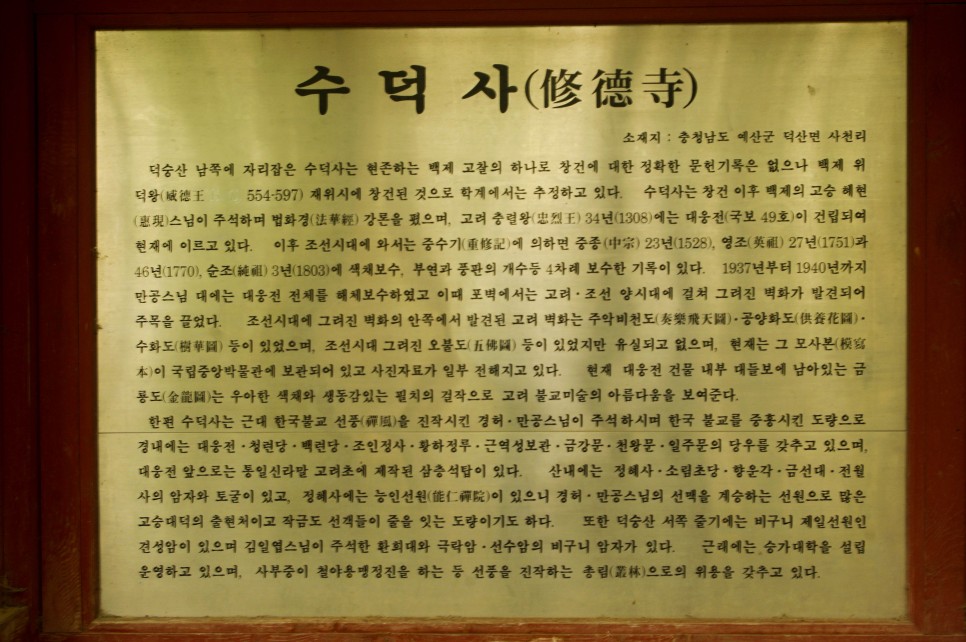 수덕사(修德寺)
소재지 : 충청남도 예산군 덕산면 사천리
덕숭산 남쪽에 자리잡은 수덕사는 현존하는 백제 고찰의 하나로 창건에 대한 정확한 문헌기록은 없으나 백제 위
덕왕(威德王 554-597) 재위시에 창건된 것으로 학계에서는 추정하고 있다. 수덕사는 창건 이후 백제의 고승 혜현
(惠現)스님이 주석하며 법화경(法華經) 강론을 폈으며, 고려 충렬왕(忠烈王) 34년(1308)에는 대웅전(국보 49호)이 건립되여
현재에 이르고 있다. 이후 조선시대에 와서는 중수기(重修記)에 의하면 중종(中宗) 23년(1528), 영조(英祖) 27년(1751)과
46년(1770), 순조(純祖) 3년(1803)에 색채보수, 부연과 풍판의 개수등 4차례 보수한 기록이 있다. 1937년부터 1940년까지
만공스님 대에는 대웅전 전체를 해체보수하였고 이때 포벽에서는 고려·조선 양시대에 걸쳐 그려진 벽화가 발견되어
주목을 끌었다. 조선시대에 그려진 벽화의 안쪽에서 발견된 고려 벽화는 주악비천도(奏樂飛天圖)·공양화도(供養花圖)·
수화도(樹華圖) 등이 있었으며, 조선시대 그려진 오불도(五佛圖) 등이 있었지만 유실되고 없으며, 현재는 그 모사본(模寫
本)이 국립중앙박물관에 보관되어 있고 사진자료가 일부 전해지고 있다. 현재 대웅전 건물 내부 대들보에 남아있는 금
룡도(金龍圖)는 우아한 색채와 생동감있는 필치의 걸작으로 고려 불교미술의 아름다움을 보여준다.
한편 수덕사는 근대 한국불교 선풍(禪風)을 진작시킨 경허·만공스님이 주석하시며 한국 불교를 중흥시킨 도량으로
경내에는 대웅전·청련당·백련당·조인정사·황하정루·근역성보관·금강문·천왕문·일주문의 당우를 갖추고 있으며,
대웅전 앞으로는 통일신라말 고려초에 제작된 삼층석탑이 있다. 산내에는 정혜사·소림초당·향운각·금선대·전월
사의 암자와 토굴이 있고, 정혜사에는 능인선원(能仁禪院)이 있으니 경허·만공스님의 선맥을 계승하는 선원으로 많은
고승대덕의 출현처이고 작금도 선객들이 줄을 잇는 도량이기도 하다. 또한 덕숭산 서쪽 줄기에는 비구니 제일선원인
견성암이 있으며 김일엽스님이 주석한 환희대와 극락암·선수암의 비구니 암자가 있다. 근래에는 승가대학을 설립
운영하고 있으며, 사부중이 철야용맹정진을 하는 등 선풍을 진작하는 총림(叢林)으로의 위용을 갖추고 있다.